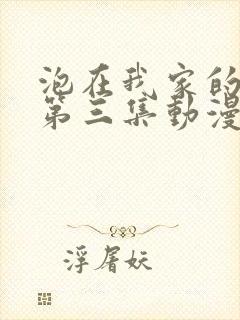 泡在我家的
第三集動漫
浮屠妖